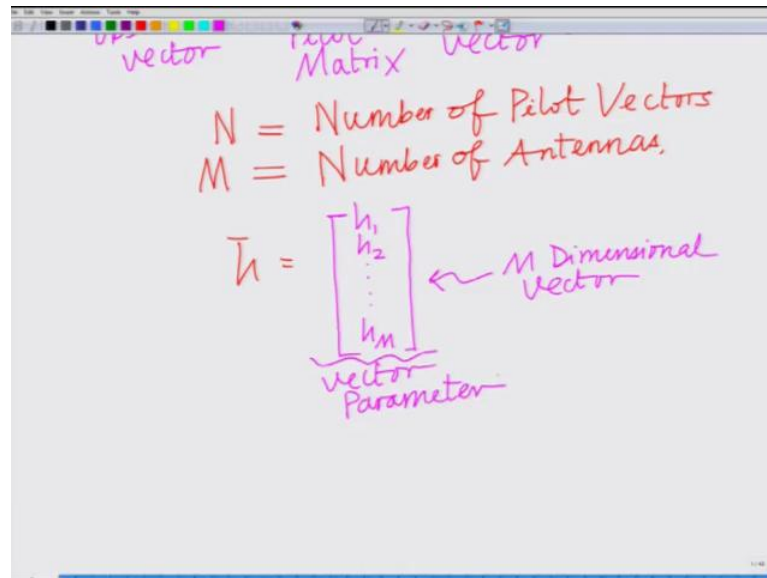 vector Matrix vector
N = Number of Pilot Vectors
M = Number of Antennas.
h̄ = [ h₁
h₂
⋮
h_M ] ← M Dimensional
vector
vector
Parameter